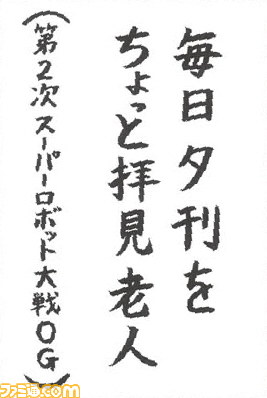 毎日夕刊を
ちょっと拝見老人
（第２次スーパーロボット大戦ＯＧ）
ファミ通.com